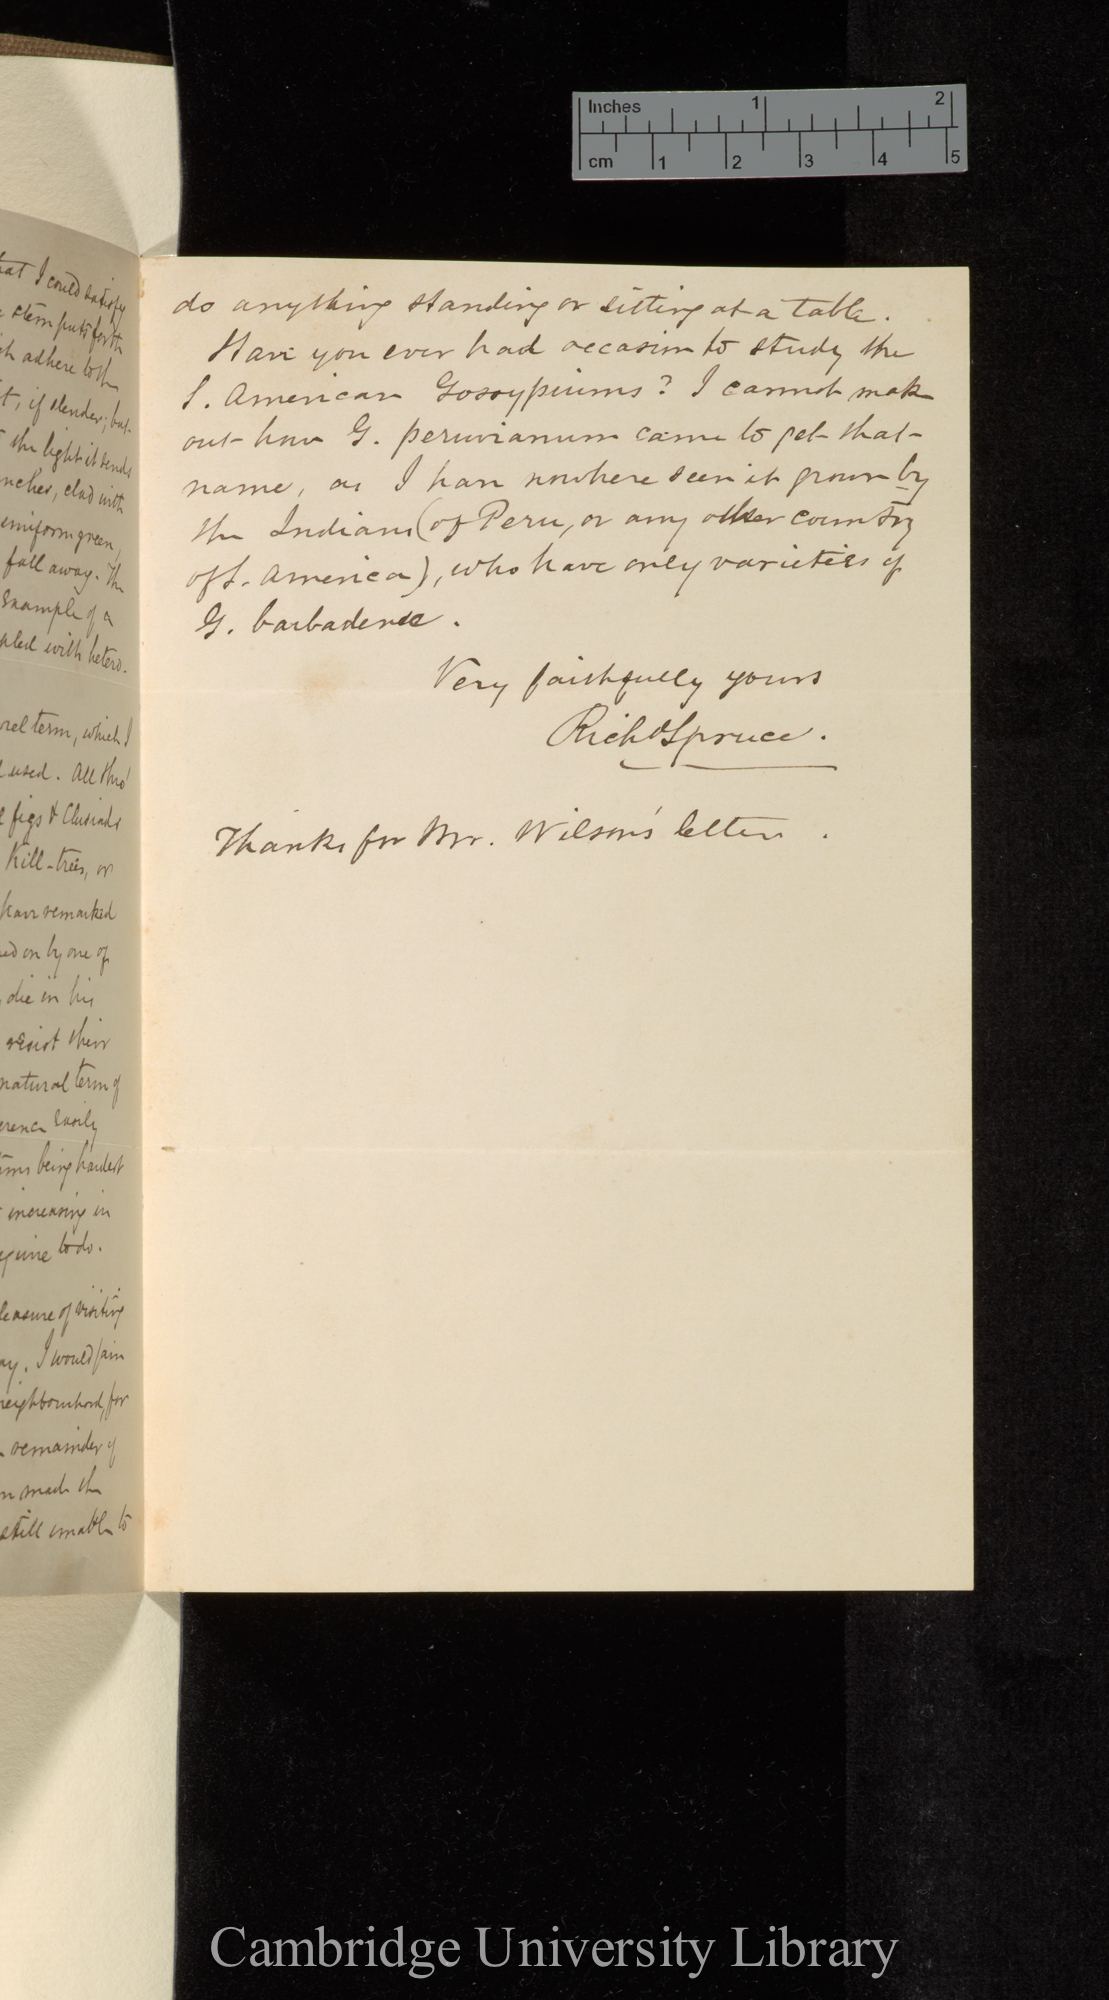 Inches 1 2
cm 1 2 3 4 5
hat I could satisfy
stem puts forth
ch adhere to the
t, if slender; but
the light it sends
nches, clad with
uniform green,
fall away. The
example of a
aled with hetero-
term, which I
used. All tho'
figs & Clusiads
Kill-trees, or
have remarked
ed on by one of
die in his
resist their
natural term of
erence easily
ems being hardest
increasing in
equire to do.
leasure of visiting
ay. I would fain
neighbourhood, for
remainder of
made the
still unable to
do anything standing or sitting at a table.
Have you ever had occasion to study the
S. American Gossypiums? I cannot make
out how G. peruvianum came to get that
name, as I have nowhere seen it grown by
the Indians (of Peru, or any other country
of S. America), who have only varieties of
G. barbadense.
Very faithfully yours
Richd Spruce.
Thanks for Mr. Wilson's letter.
Cambridge University Library